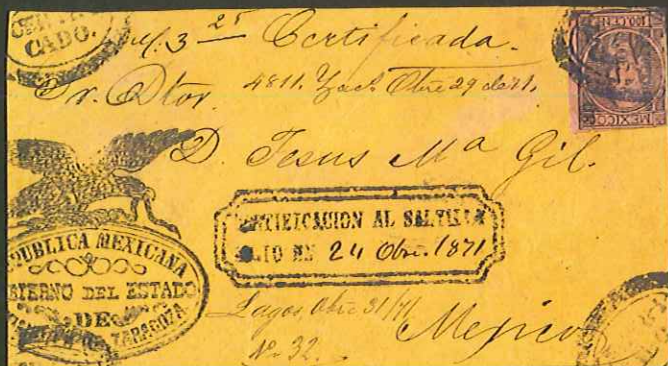 CADO.
3 25 Certificada.
Sr. Dtor. 4811. Zacs. Obre 29 de 71.
D. Jesus Ma Gil.
CERTIFICACION AL SALTILLO
24 Obre. 1871
REPUBLICA MEXICANA
GOBIERNO DEL ESTADO
DE
ZARAGOZA
Lagos, Obre 31/71
No. 32.
Mexico
MEXICO